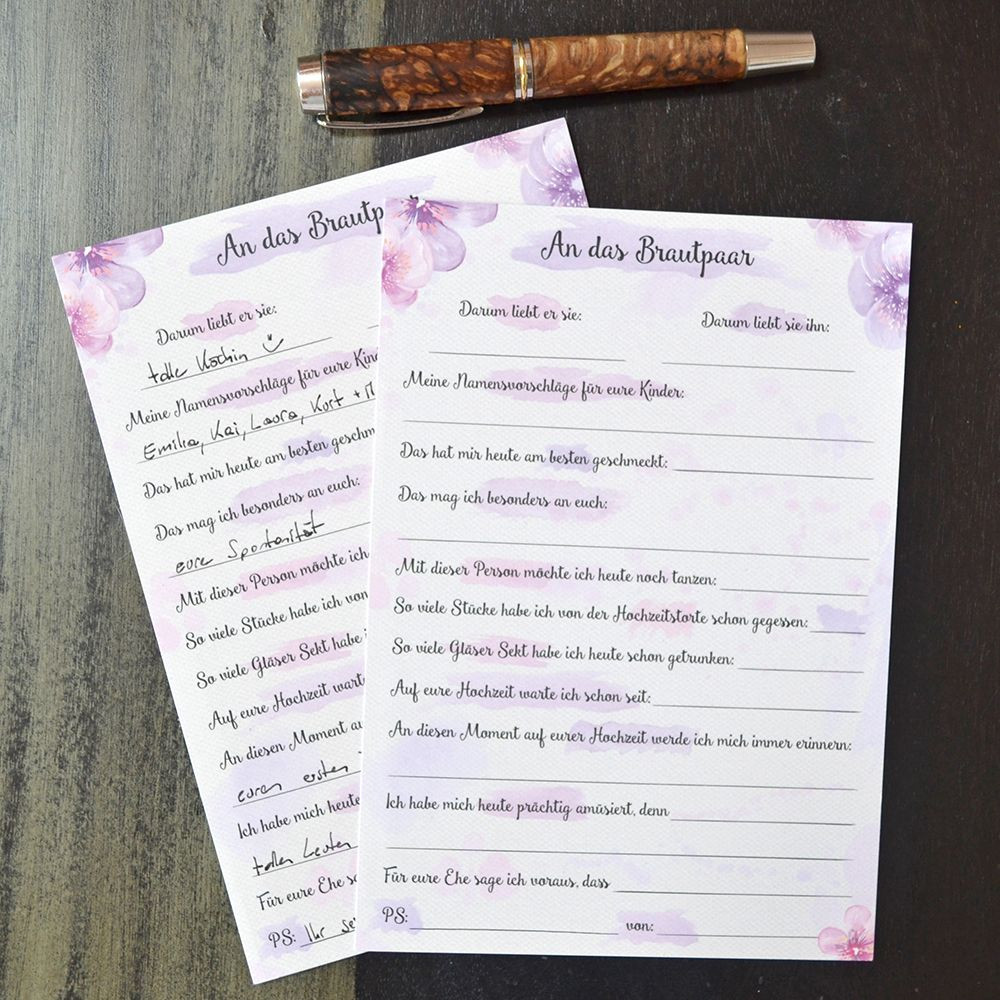 An das Brautp
Darum liebt er sie:
tolle Köchin
Meine Namensvorschläge für eure Kind
Emilia, Kai, Laura, Kurt +
Das hat mir heute am besten geschm
Das mag ich besonders an euch:
eure Spontanität
Mit dieser Person möchte ich
So viele Stücke habe ich von
So viele Gläser Sekt habe i
Auf eure Hochzeit warte
An diesen Moment au
euren ersten
Ich habe mich heute
tollen Leuten
Für eure Ehe sa
PS: Ihr sei
An das Brautpaar
Darum liebt er sie: Darum liebt sie ihn:
Meine Namensvorschläge für eure Kinder:
Das hat mir heute am besten geschmeckt:
Das mag ich besonders an euch:
Mit dieser Person möchte ich heute noch tanzen:
So viele Stücke habe ich von der Hochzeitstorte schon gegessen:
So viele Gläser Sekt habe ich heute schon getrunken:
Auf eure Hochzeit warte ich schon seit:
An diesen Moment auf eurer Hochzeit werde ich mich immer erinnern:
Ich habe mich heute prächtig amüsiert, denn
Für eure Ehe sage ich voraus, dass
PS: von: